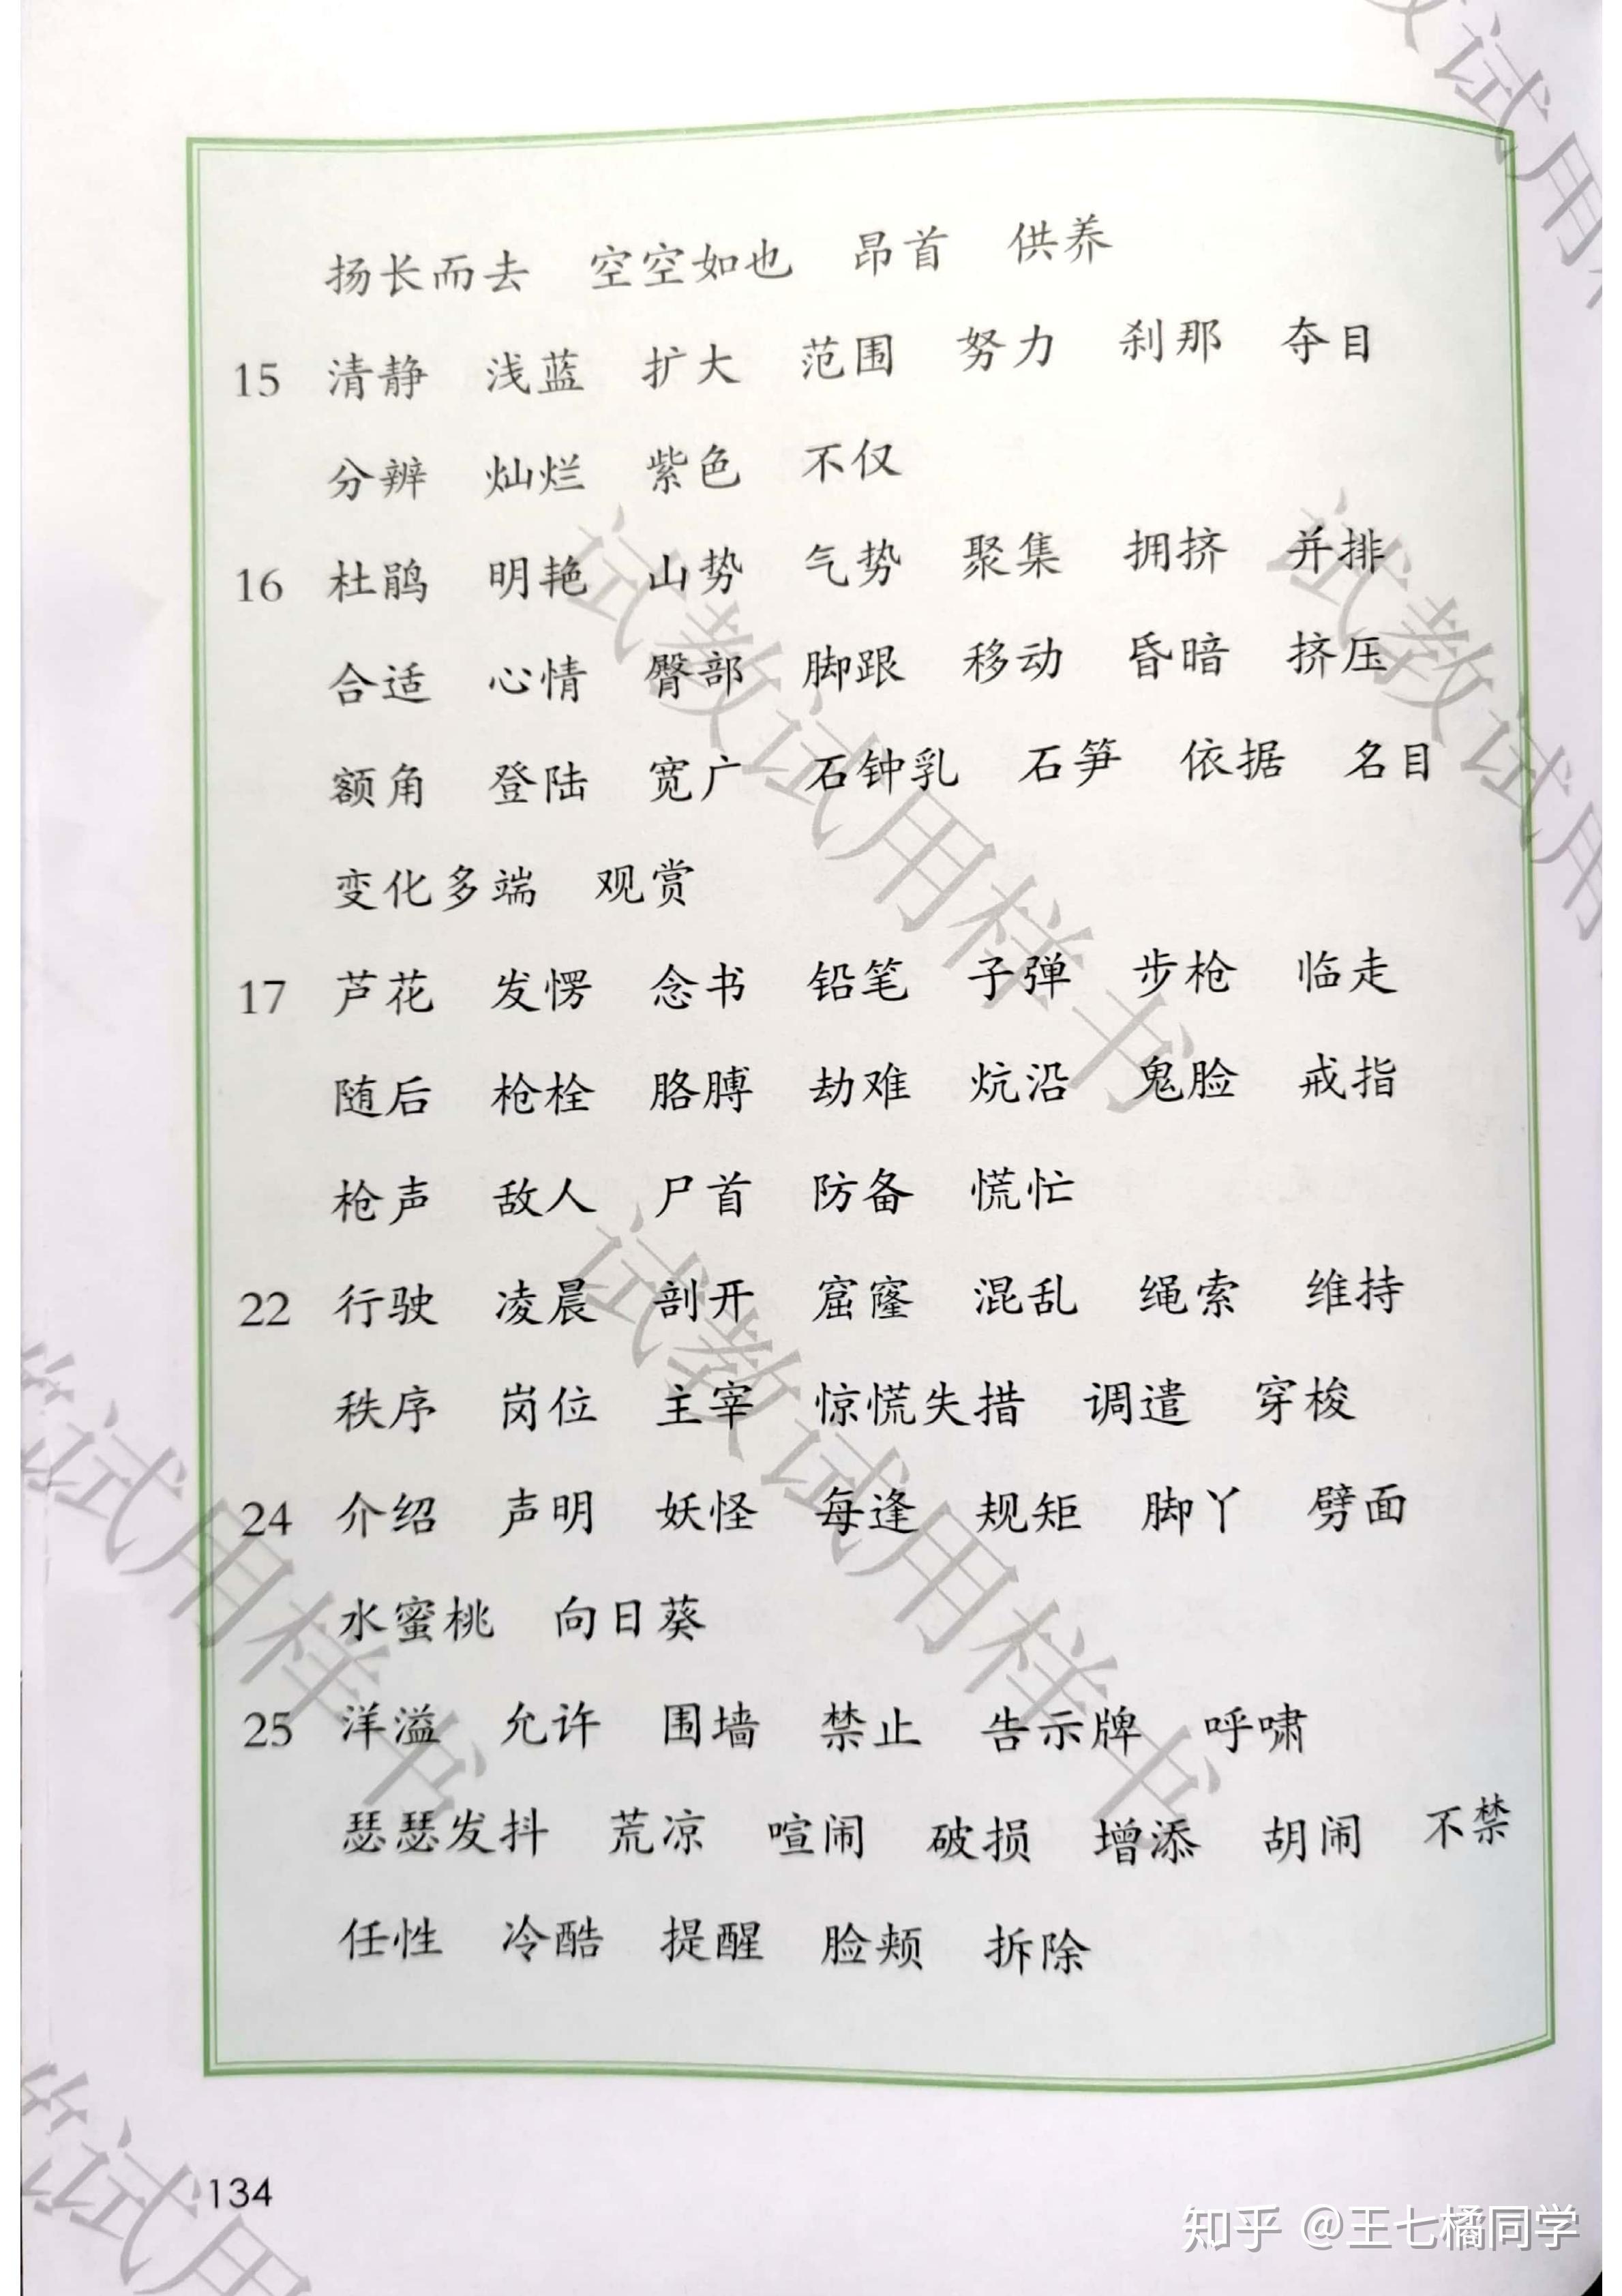 扬长而去 空空如也 昂首 供养
15 清静 浅蓝 扩大 范围 努力 刹那 夺目
分辨 灿烂 紫色 不仅
16 杜鹃 明艳 山势 气势 聚集 拥挤 并排
合适 心情 臀部 脚跟 移动 昏暗 挤压
额角 登陆 宽广 石钟乳 石笋 依据 名目
变化多端 观赏
17 芦花 发愣 念书 铅笔 子弹 步枪 临走
随后 枪栓 胳膊 劫难 炕沿 鬼脸 戒指
枪声 敌人 尸首 防备 慌忙
22 行驶 凌晨 剖开 窟窿 混乱 绳索 维持
秩序 岗位 主宰 惊慌失措 调遣 穿梭
24 介绍 声明 妖怪 每逢 规矩 脚丫 劈面
水蜜桃 向日葵
25 洋溢 允许 围墙 禁止 告示牌 呼啸
瑟瑟发抖 荒凉 喧闹 破损 增添 胡闹 不禁
任性 冷酷 提醒 脸颊 拆除
134
知乎 @王七橘同学
试教试用样书
试教试用样书
试教试用
教试用样
试用样书
试用